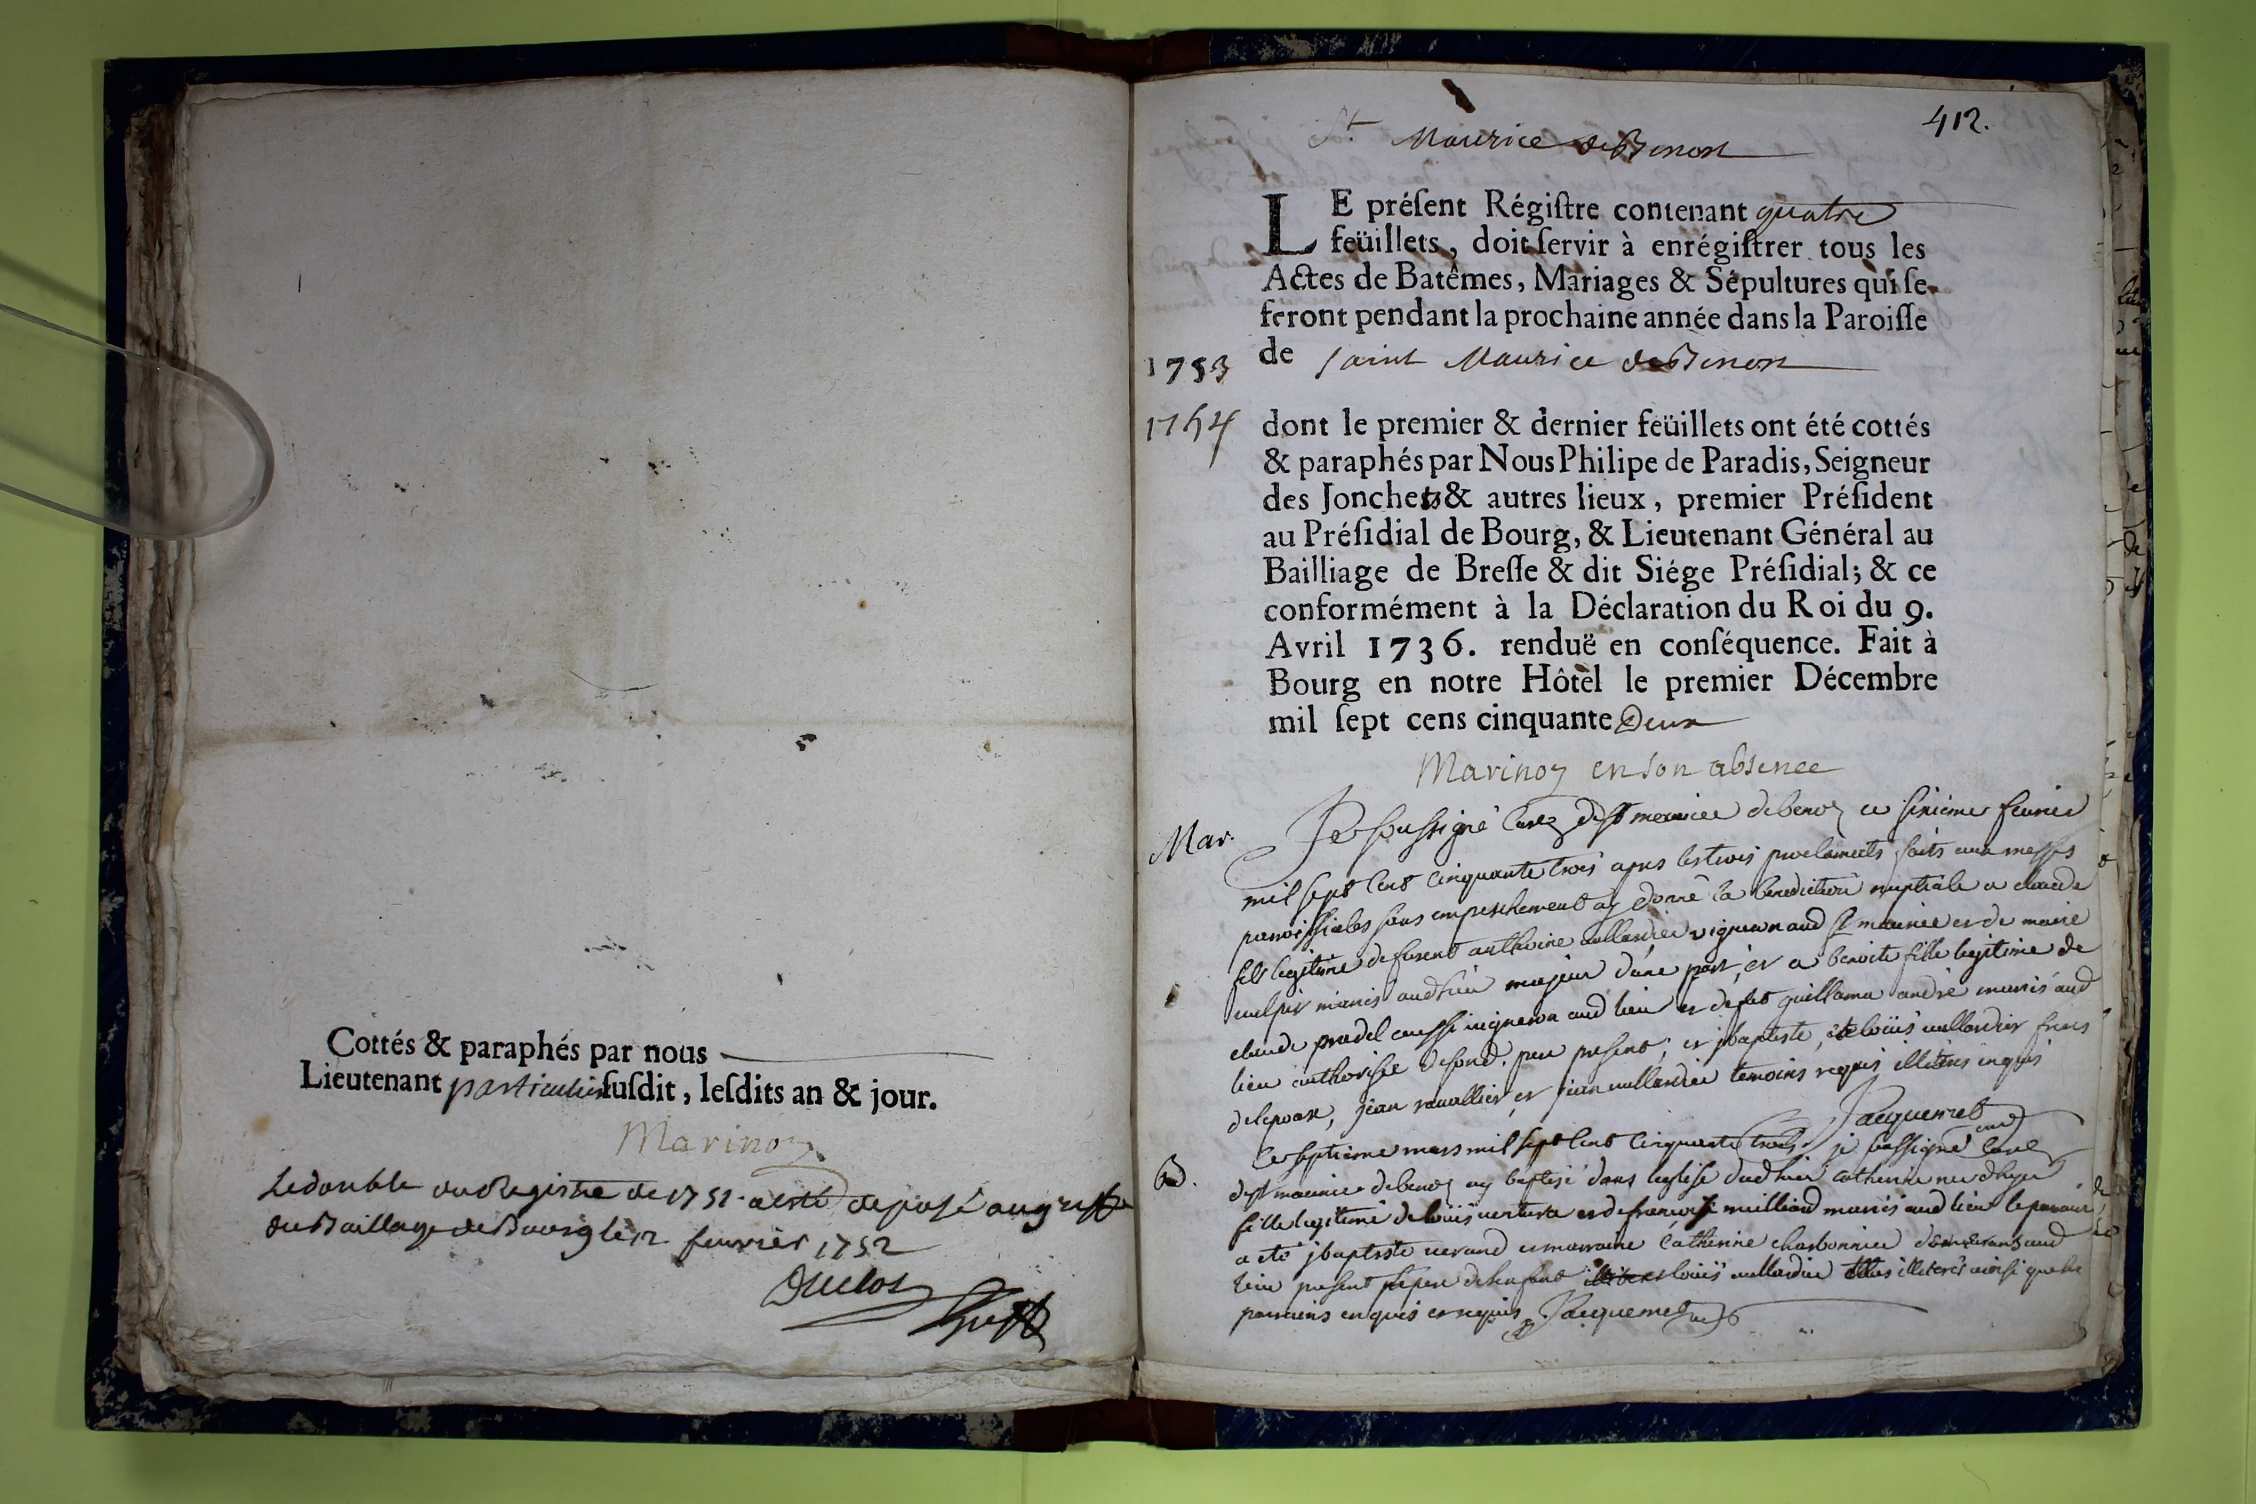 Cottés & paraphés par nous
Lieutenant particulier ſuſdit, leſdits an & jour.
Marinoz
Le double du Registre de 1751 a esté deposé au greffe
du Baillage de Bourg le 12 fevrier 1752
Duclos
Greff
412.
St Maurice de Benon
LE préſent Régiſtre contenant quatre
feüillets, doit ſervir à enrégiſtrer tous les
Actes de Batêmes, Mariages & Sépultures qui ſe
feront pendant la prochaine année dans la Paroiſſe
1753 de Saint Maurice de Benon
1754 dont le premier & dernier feüillets ont été cottés
& paraphés par Nous Philipe de Paradis, Seigneur
des Jonchets & autres lieux, premier Préſident
au Préſidial de Bourg, & Lieutenant Général au
Bailliage de Breſſe & dit Siége Préſidial; & ce
conformément à la Déclaration du Roi du 9.
Avril 1736. renduë en conſéquence. Fait à
Bourg en notre Hôtel le premier Décembre
mil ſept cens cinquante Deux
Marinoz en son absence
Mar. Je soussigné Curé de st maurice de benoz ce sixieme fevrier
mil sept cent cinquante trois apres les trois proclamats faits aux messes
paroissiales sans empeschement ay donné la benediction nuptiale a claude
fils legitime de furent anthoine vigneron aud st maurice et de marie
mariés audit lieu majeur d'une part, et a benoite fille legitime de
claude pradel aussi vigneron aud lieu et de fut guillama andré mariés aud
lieu authorisée de sond. pere present, et jbaptiste, et loüis freres
de lepoux, jean et jean temoins requis illiteres enquis
Jacquemet curé
Bd. Ce septieme mars mil sept cent cinquante trois je soussigné Curé
de st maurice de benoz ay baptisé dans l'eglise dud lieu catherine née d'hyer
fille legitime de loüis et de francoise milliand mariés aud lieu le parain
a eté jbaptiste verand et marraine Catherine charbonnier demeurants aud
lieu present le pere de l'enfant loüis illiterés ainsi que les
parrains enquis et requis. Jacquemet curé